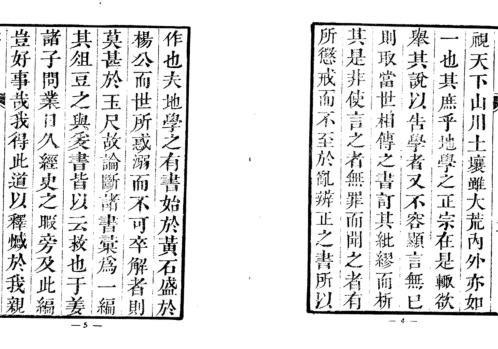 視天下山川土壤雖大荒內外亦如
一也其庶乎地學之正宗在是轍欲
舉其說以告學者又不容顯言無已
則取當世相傳之書訂其紕繆而析
其是非使言之者無罪而聞之者有
所懲戒而不至於亂辨正之書所以
— 4 —
作也夫地學之有書始於黃石盛於
楊公而世所惑溺而不可卒解者則
莫甚於玉尺故論斷諸書彙為一編
其俎豆之與爰書皆以云救也于姜
諸子問業日久經史之暇旁及此編
豈好事哉我得此道以釋憾於我親
— 5 —